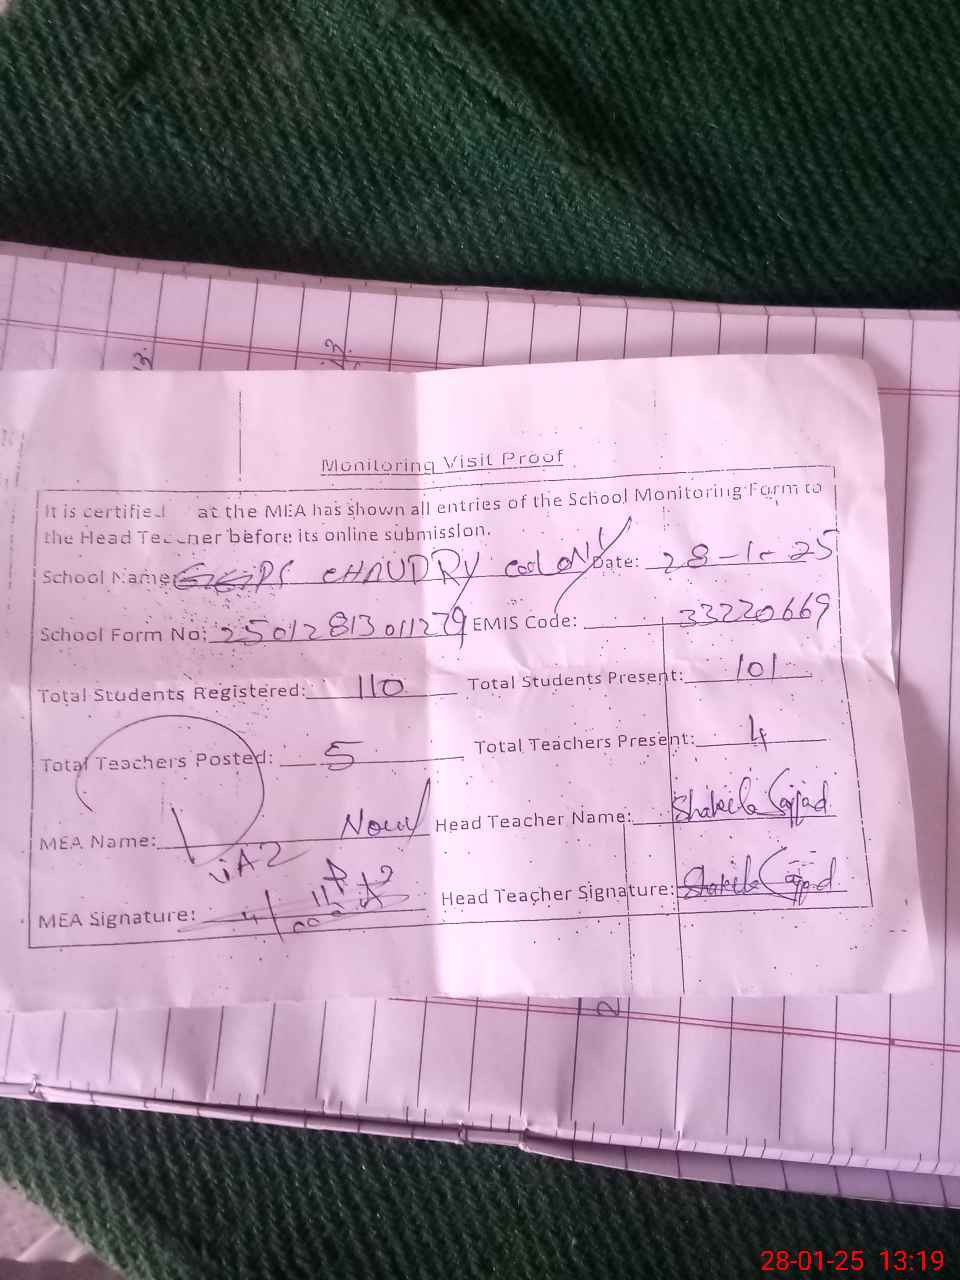 Monitoring Visit Proof
It is certified at the MEA has shown all entries of the School Monitoring Form to
the Head Teacher before its online submission.
School Name: GGPS CHAUDRY COOLONY Date: 28-1-25
School Form No: 25012813011279 EMIS Code: 33220669
Total Students Registered: 110 Total Students Present: 101
Total Teachers Posted: 5 Total Teachers Present: 4
MEA Name: Head Teacher Name: Shakila Sajjad
MEA Signature: Head Teacher Signature: Shakila Sajjad
28-01-25 13:19